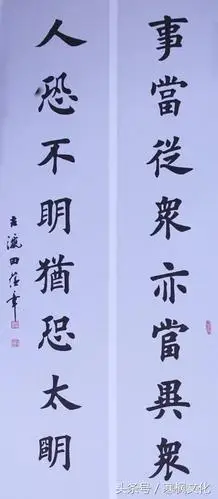 事當從衆亦當異衆
人恐不明猶恐太明
古瀛田蕴章
头条号/寒枫文化